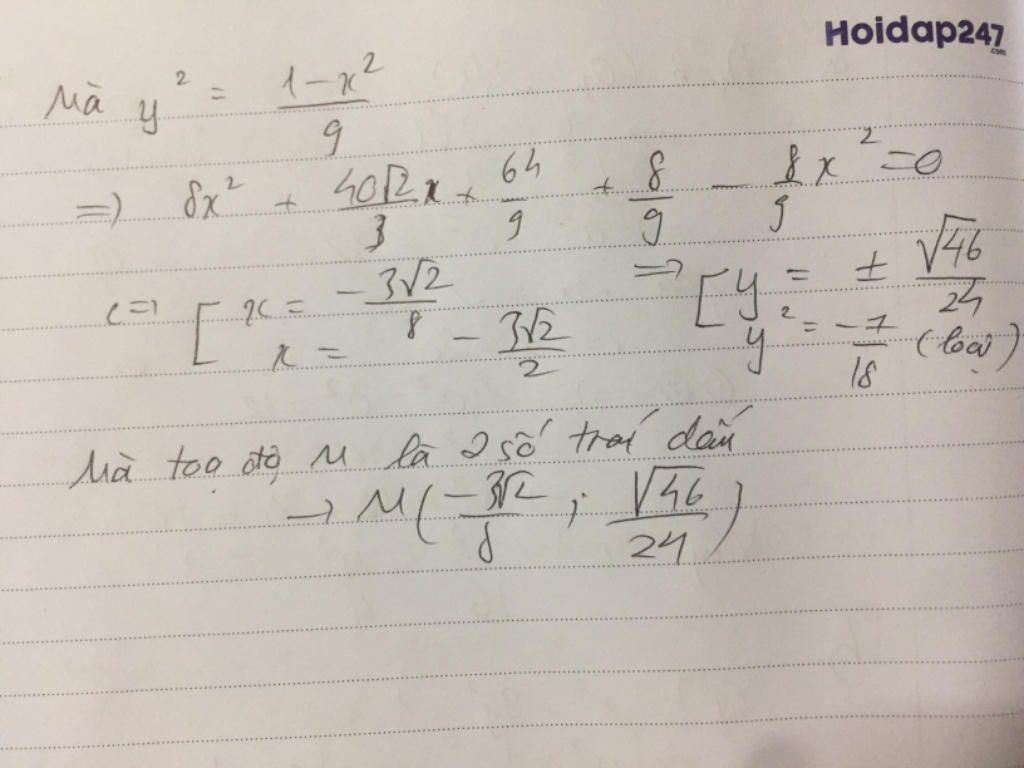 Hoidap247
.com
Mà y² = (1-x²)/9
=) 8x² + (40√2)/3 x + 64/9 + 8/9 - 8/9 x² = 0
<=> [ x = (-3√2)/8 => [ y = ± √46/24
x = -(3√2)/2 y² = -7/18 (loại)
Mà toạ độ M là 2 số trái dấu
→ M((-3√2)/8 ; √46/24)